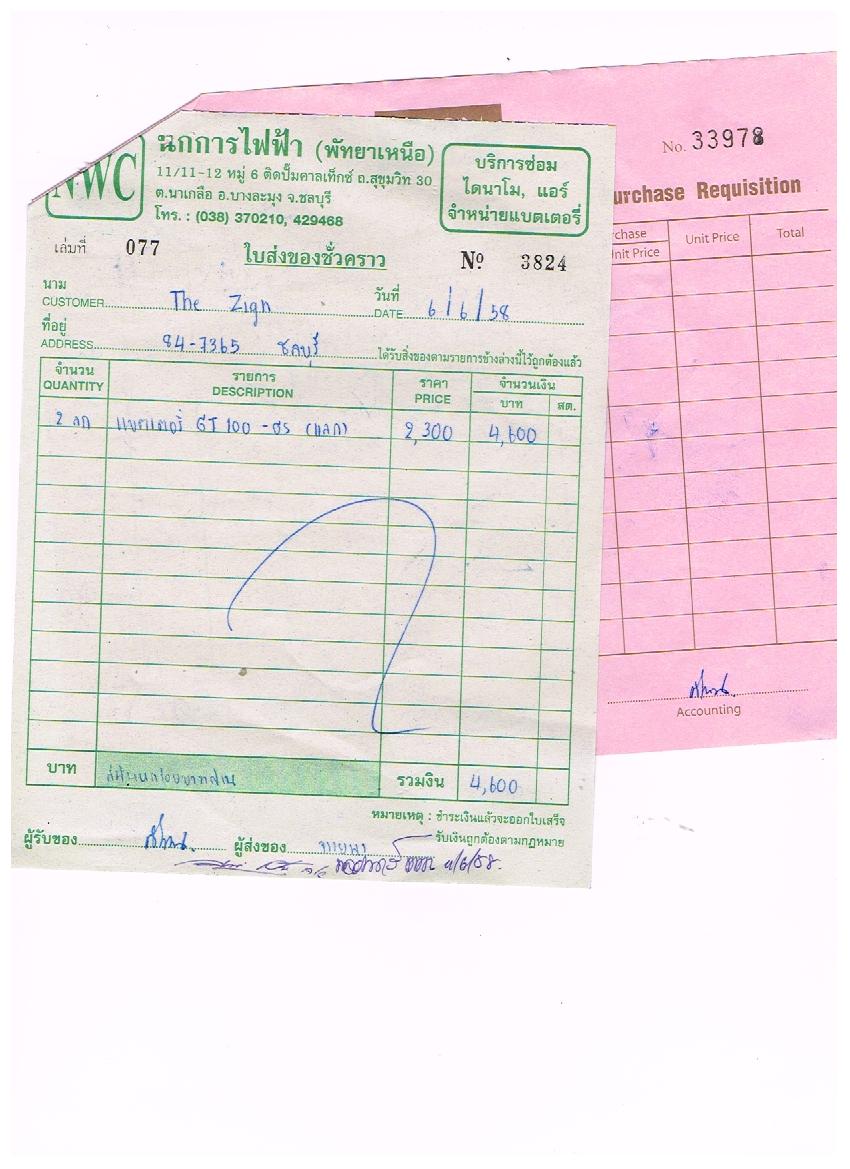 NWC
นกการไฟฟ้า (พัทยาเหนือ)
11/11-12 หมู่ 6 ติดปั๊มคาลเท็กซ์ ถ.สุขุมวิท 30
ต.นาเกลือ อ.บางละมุง จ.ชลบุรี
โทร. : (038) 370210, 429468
บริการซ่อม
ไดนาโม, แอร์
จำหน่ายแบตเตอรี่
เล่มที่ 077
ใบส่งของชั่วคราว
Nº 3824
นาม
CUSTOMER The Zign
วันที่
DATE 6/6/58
ที่อยู่
ADDRESS 84-7365 ชลบุรี
ได้รับสิ่งของตามรายการข้างล่างนี้ไว้ถูกต้องแล้ว
จำนวน รายการ ราคา จำนวนเงิน
QUANTITY DESCRIPTION PRICE บาท สต.
2 ลูก แบตเตอรี่ GT 100 2,300 4,600
บาท รวมเงิน 4,600
หมายเหตุ : ชำระเงินแล้วจะออกใบเสร็จ
รับเงินถูกต้องตามกฎหมาย
ผู้รับของ ผู้ส่งของ
No. 33978
urchase Requisition
rchase
nit Price Unit Price Total
Accounting